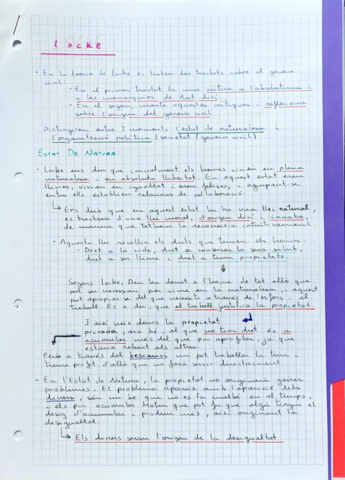 Locke
· En la teoria de Locke es troben dos tractats sobre el govern
civil:
- En el primer tractat fa una crítica a l'absolutisme i
a les monarquies de dret diví.
- En el segon, manté aquestes crítiques i reflexiona
sobre l'origen del govern civil.
Distingeix entre 2 moments: l'estat de naturalesa i
l'organització política (societat i govern civil)
ESTAT DE NATURA:
· Locke ens diu que inicialment els homes vivien en plena
naturalesa i en absoluta llibertat. En aquest estat eren
lliures, vivien en igualtat i eren feliços, i agrupant-se
entre ells establien relacions de col·laboració.
↳ Ens diu que en aquest estat hi ha una llei natural,
es tractaria d'una llei moral, d'origen diví i
de manera que tothom la reconeixia intuïtivament
· Aquesta llei recollia els drets que tenien els homes:
- Dret a la vida, dret a conservar la seva salut,
dret a ser lliure i dret a tenir propietats.
Segons Locke, Déu ha donat a l'home de tot allò que
pot ser necessari per viure en la naturalesa, i aquest
pot apropiar-se del que necessita a través de l'esforç i el
treball. És a dir, que el treball justifica la propietat.
I així neix doncs la propietat
privada, ara bé, al que no tinc dret és a
acumular més del que puc aprofitar, ja que
estaria robant als altres.
Però a través del bescanvi un pot treballar la terra i
treure profit d'allò que no faig servir directament.
· En l'Estat de Natura, la propietat no origina gaires
problemes. El problema apareix amb l'aparició dels
diners, són un bé que no es fa malbé en el temps,
i els puc acumular. Motiu que pot fer que algú tingui el
desig d'acumular i produir més, així originant la
desigualtat.
↳ Els diners seran l'origen de la desigualtat.